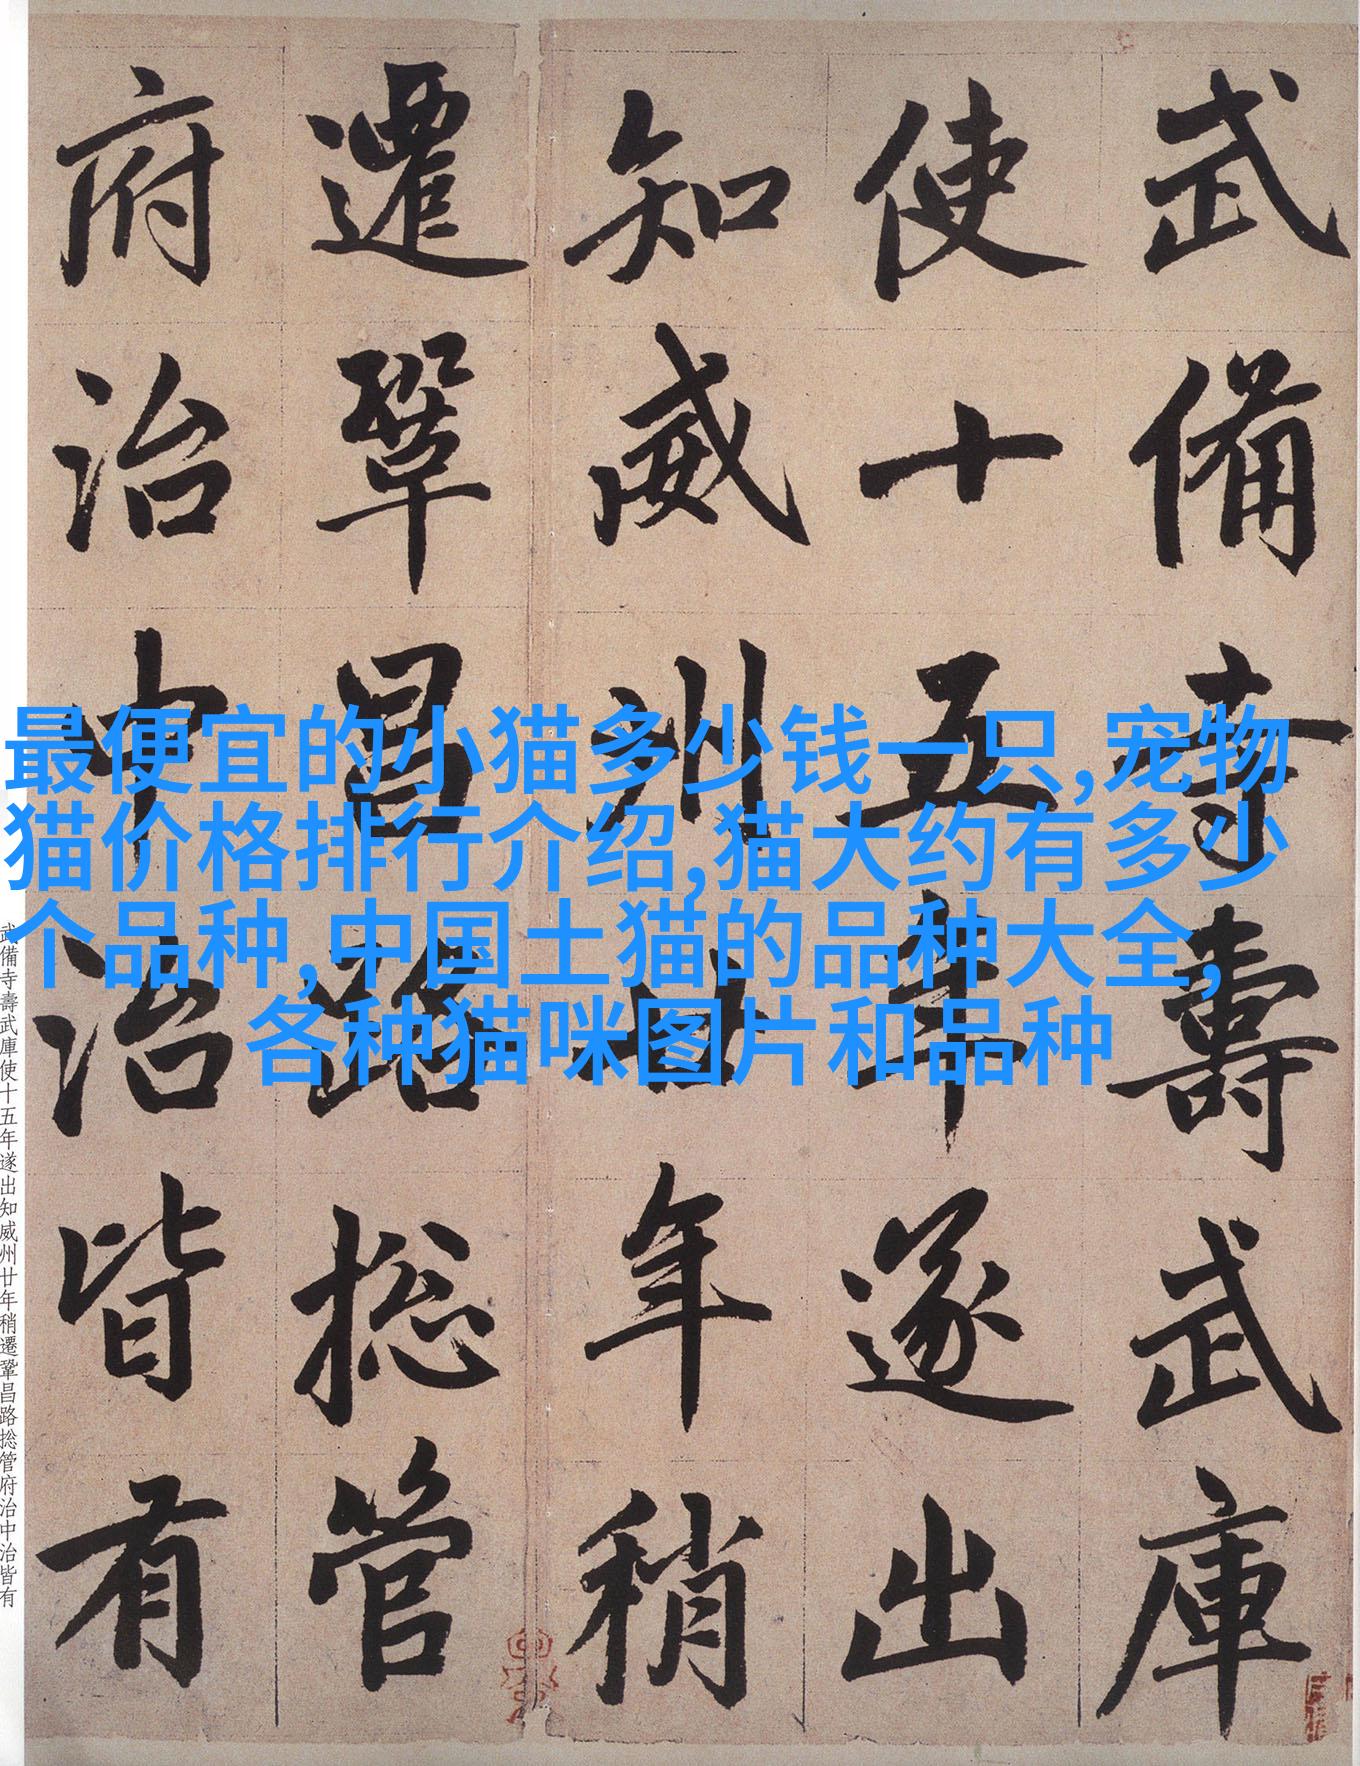 武備寺壽武庫
使十五年遂出
知威州廿年稍
遷鞏昌路捴管
府治中治皆有
最便宜的小猫多少钱一只,宠物
猫价格排行介绍,猫大约有多少
个品种,中国土猫的品种大全,
各种猫咪图片和品种
武備寺壽武庫使十五年遂出知威州廿年稍遷鞏昌路捴管府治中治皆有